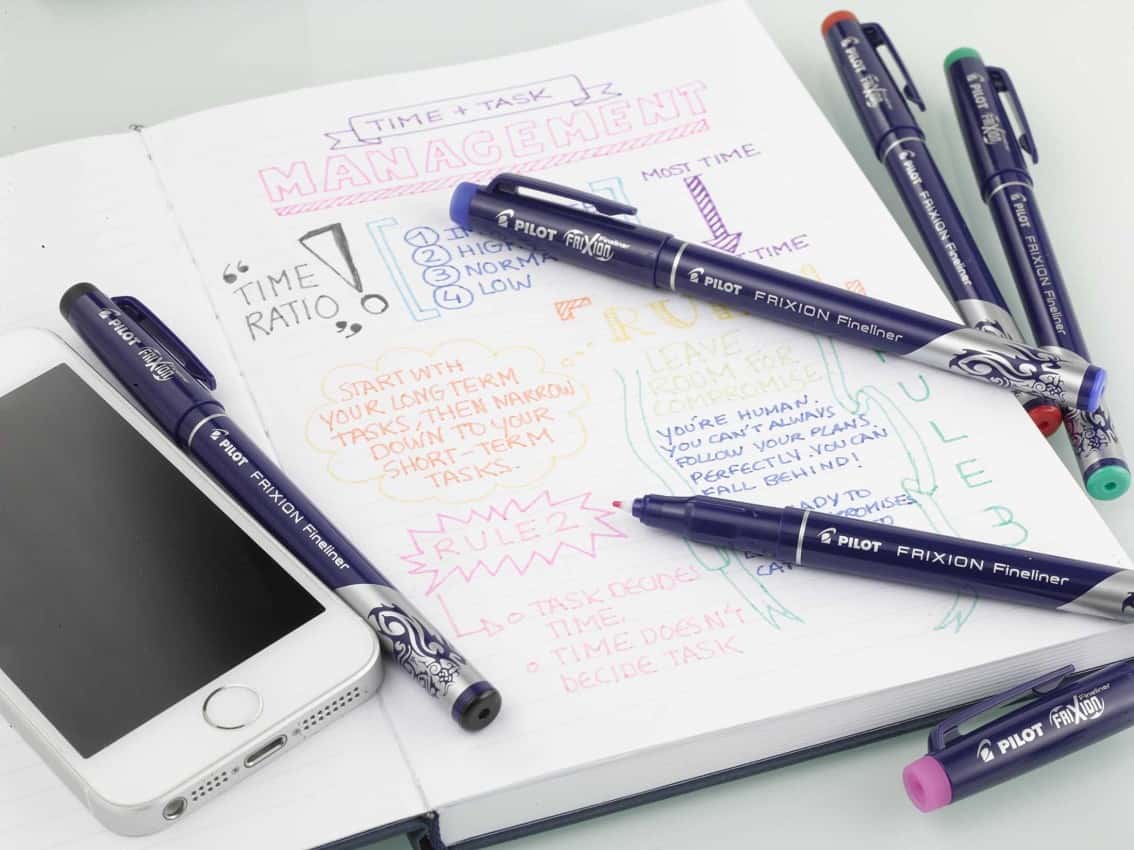 TIME + TASK
MANAGEMENT
MOST TIME
TIME
"TIME
RATIO"!
1
2 HIGH
3 NORMA
4 LOW
RU
START WTH
YOUR LONG TERM
TASKS, THEN NARROW
DOWN TO YOUR
SHORT-TERM
TASKS.
LEAVE
ROOM FOR
COMPROMISE
YOU'RE HUMAN.
YOU CAN'T ALWAYS
FOLLOW YOUR PLANS.
PERFECTLY. YOU CAN
FALL BEHIND!
ADY TO
PROMISES
CA
ULE 3
RULE 2
TASK DECIDES
TIME.
TIME DOESN'T
DECIDE TASK
PILOT FRIXION Fineliner
PILOT FRIXION Fineliner
PILOT FRIXION
PILOT FRIXION Fineliner
PILOT FRIXION
PILOT FRIXION Fineliner
PILOT FRIXION
PILOT FRIXION Fineliner
PILOT FRIXION Fineliner
PILOT FRIXION Fineliner